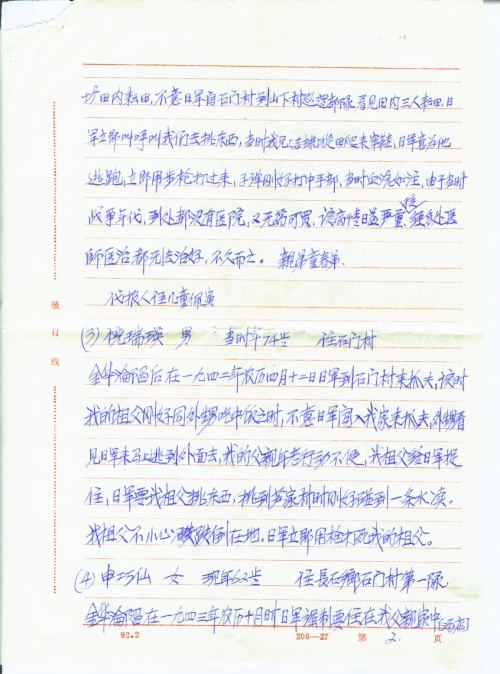 坊田内耘田,不意日军自石门村到山下村巡逻部队看见田内三人耘田,日
军立即叫呼叫我们去挑东西,当时我兄 田爬来穿鞋,日军意为他
逃跑,立即用步枪打过来,子弹刚好打中手部,当时血流如注,由于当时
战争年代,到处都没有医院,又无药可买,该病情日益严重,经多处医
師医治都无法治好,不久而亡。 親弟童春弟.
代报人侄儿童佩演
(3) 倪瑞璞 男 当时年74岁 住石门村
金华淪陷后在一九四二年农历四月十二日日军到石门村来抓夫,该时
我的祖父刚好同外甥吃中饭之时,不意日军闯入我家来抓夫,外甥看
见日军来马上逃到外面去,我的父親年老行动不便,我祖父给日军捉
住,日军要我祖父挑东西,挑到芦家村时刚好碰到一条水溇。
我祖父不小心跌倒在地。日军立即用枪打死我的祖父。
(4) 申巧仙 女 现年62岁 住長石鄉石门村第一隊.
金华淪陷在一九四三年农历十月时日军强制要住在我父親家中
装
订
线
92.2 206—27 第 2. 页